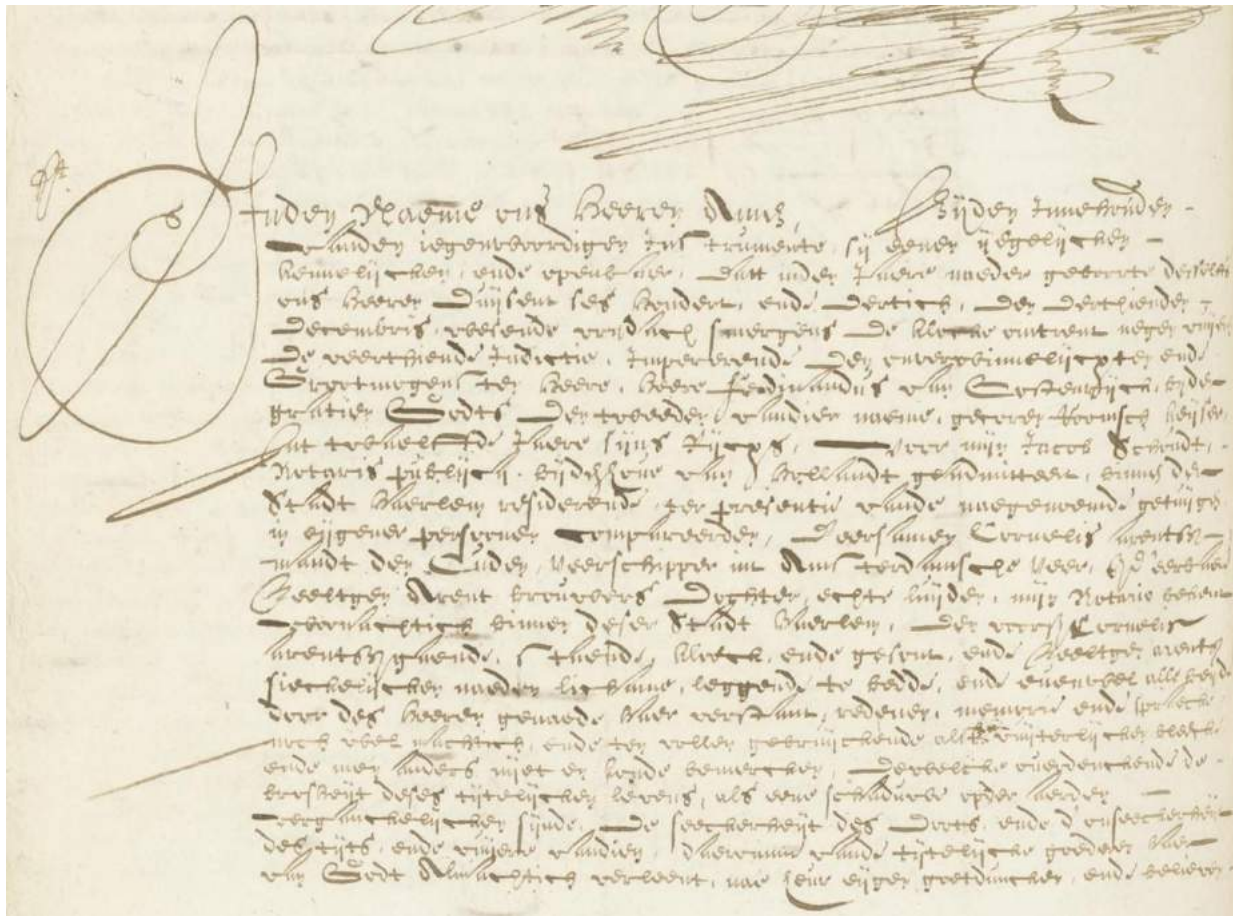 Inden Naeme ons Heeren Amen, Bijden Innehouden
vanden iegenwoordigen Instrumente, sij eenen ijegelijcken
kennelijcken, ende openbaer, Datt inden Jaere naeder geboorte desselffs
ons Heeren Duijsent ses hondert, ende dertich, den dertienden
Decembris, wesende vrijdach smorgens de klocke omtrent negen uijren
De veerthiende Indictie, Impererende den onverwinnelijcxten ende
Grootmogensten Heere, Heere Ferdinandus van Oostenrijck, bijde
gratien Godts den tweeden vandier naeme, gecoren Rooms Keijser
hat twaelffde Jaere sijns Rijcx, voor mijn Jacob Schoudt,
Notaris publijcq, bijden hove van Hollandt geadmitteert, binnen de
Stadt Haerlem residerende, ter presentie vande naegenoemde getuijgen
in eijgener persoonen compareerden, Eersamen Cornelis arentsz
mandt den Ouden, veerschipper int Amsterdamsche veer, ende eerbare
Neeltgen Arent brouwers dochter, echte luijden, mijn Notario bekent
woonachtich binnen deser Stadt Haerlem, den voorss Cornelis
arentsz gaende, staende, kloeck, ende gesont, ende Neeltgen arents
sieckelijcken naeden lichame, leggende te bedde, ende evenwel alle beijde
door des Heeren genaede, haer verstant, redenen, memorie ende spraecke
noch wel machtich, ende ten vollen gebruijckende als uijterlijcken bleeck
ende men anders niet en konde bemercken, Dewelcke overdenckende de
broosheijt deses tijtelijcken levens, als eene schaduwe opder aerden
verganckelijcken sijnde, De seeckerheijt des Doots, ende d'onseeckerheijt
des tijts, ende uijre vandien, daeromme vande tijtelijcke goederen haer
van Godt Almachtich verleent, nae heur eijgen goetduncken, ende believen